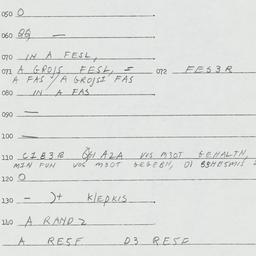 050 O
060 QQ —
070 IN A FESL,
071 A GROJS FESL, = 072 FES3R
A FAS / A GROJSI FAS
080 IN A FAS
090 —
100 —
110 CIB3R A2A VOS M3OT GEHALTN,
MIN FUN VOS M3OT GEGEBN, DI
120 O
130 — )+ KlEPKIS
140 A RAND2
A RESF D3 RESF